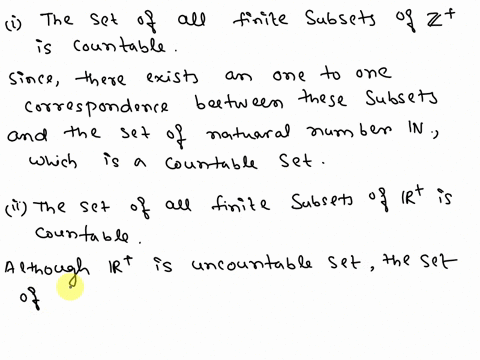 (i) The set of all finite subsets of ℤ⁺
is countable.
Since, there exists an one to one
correspondence beetween these subsets
and the set of natuaral number IN.,
which is a countable set.
(ii) The set of all finite subsets of IR⁺ is
countable.
Although IR⁺ is uncountable set, the set
of